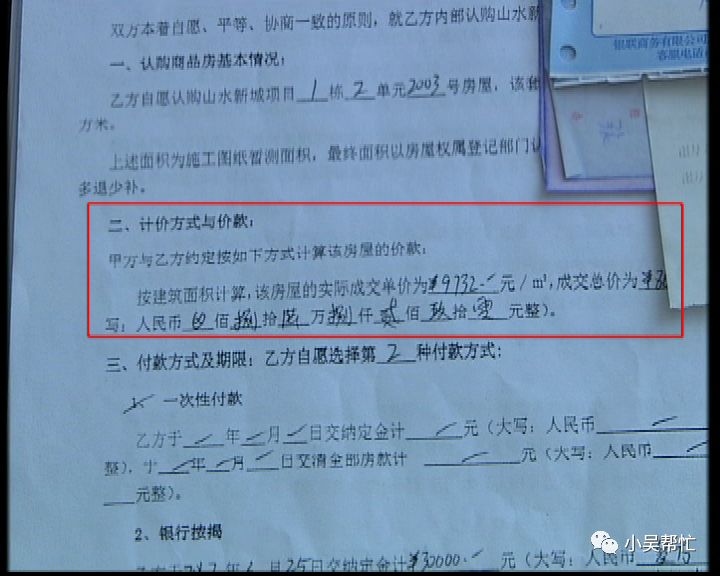 双方本着自愿、平等、协商一致的原则，就乙方内部认购山水新
一、认购商品房基本情况：
乙方自愿认购山水新城项目 1 栋 2 单元2003号房屋，该套
方米。
上述面积为施工图纸暂测面积，最终面积以房屋权属登记部门认
多退少补。
二、计价方式与价款：
甲方与乙方约定按如下方式计算该房屋的价款：
按建筑面积计算，该房屋的实际成交单价为¥9732.元／㎡，成交总价为¥
写：人民币 佰 捌 拾 陆 万 捌 仟 贰 佰 玖 拾 零 元整）。
三、付款方式及期限：乙方自愿选择第 2 种付款方式：
1、一次性付款
乙方于 年 月 日交纳定金计 元（大写：人民币
整），于 年 月 日交清全部房款计 元（大写：人民币
元整）。
2、银行按揭
乙方于 年 月25日交纳定金计¥30000. 元（大写：人民币
银联商务有限公司
客服电话
小吴帮忙